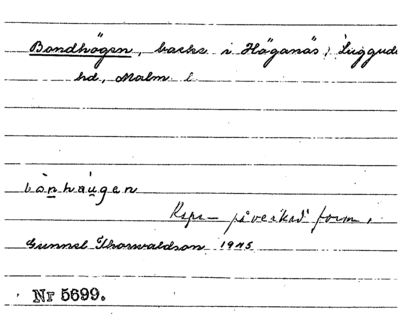 Bondhögen, backe i Höganäs, Luggude
hd, Malm l
bònhàugen
Rspr-påverkad form.
Gunnel Thorwaldson 1945
Nr 5699.